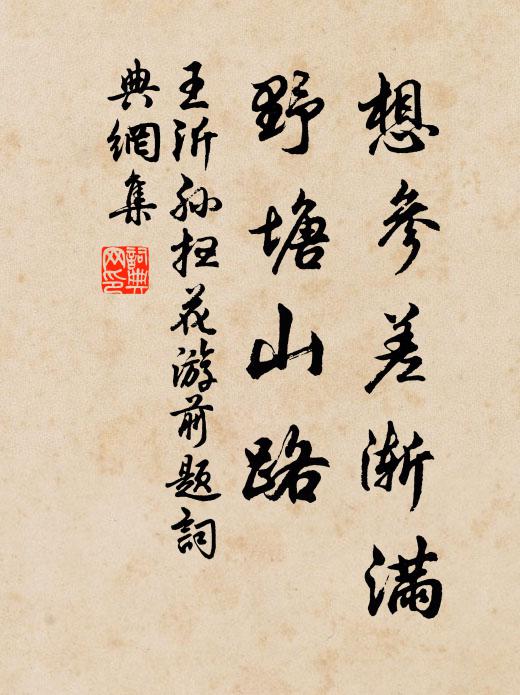 想參差漸滿
野塘山路
王沂孙扫花游前题詞
典網集
詞典网印